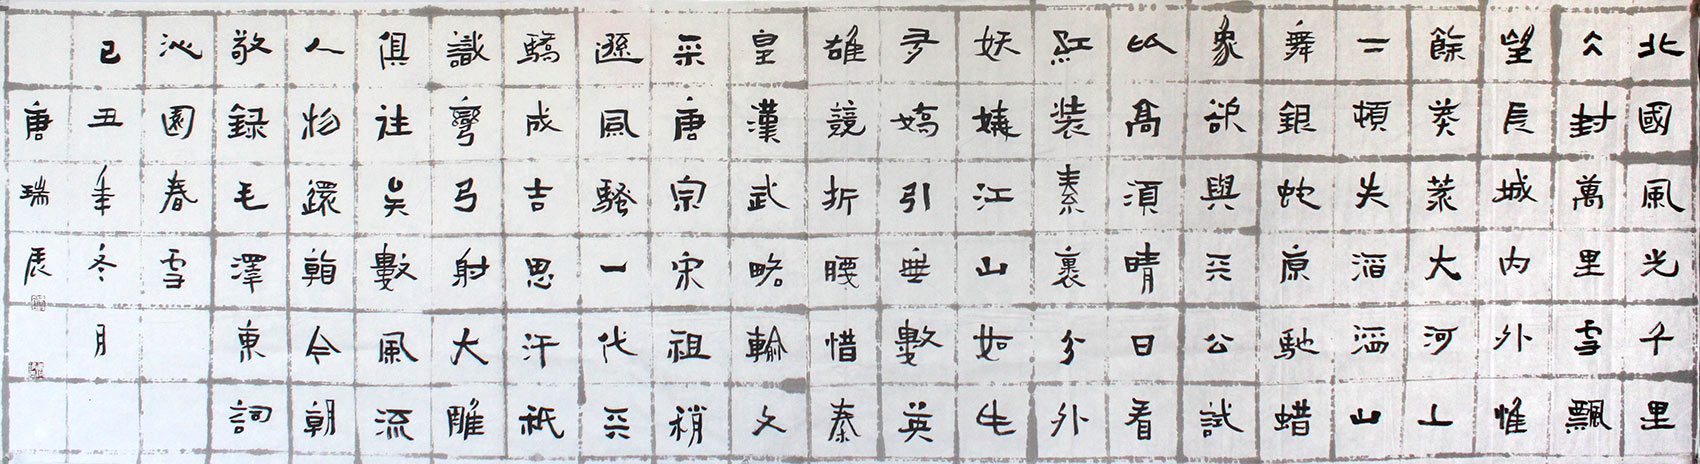 北國風光千里
仌封萬里雪飄
望長城内外惟
餘莽莽大河上
下頓失滔滔山
舞銀蛇原馳蜡
象欲與天公試
比高須晴日看
紅裝素裹分外
妖嬈江山如此
多嬌引無數英
雄競折腰惜秦
皇漢武略輸文
采唐宗宋祖稍
遜風騷一代天
驕成吉思汗祇
識彎弓射大雕
俱往矣數風流
人物還看今朝
敬録毛澤東詞
沁園春雪
己丑年冬月
唐瑞展